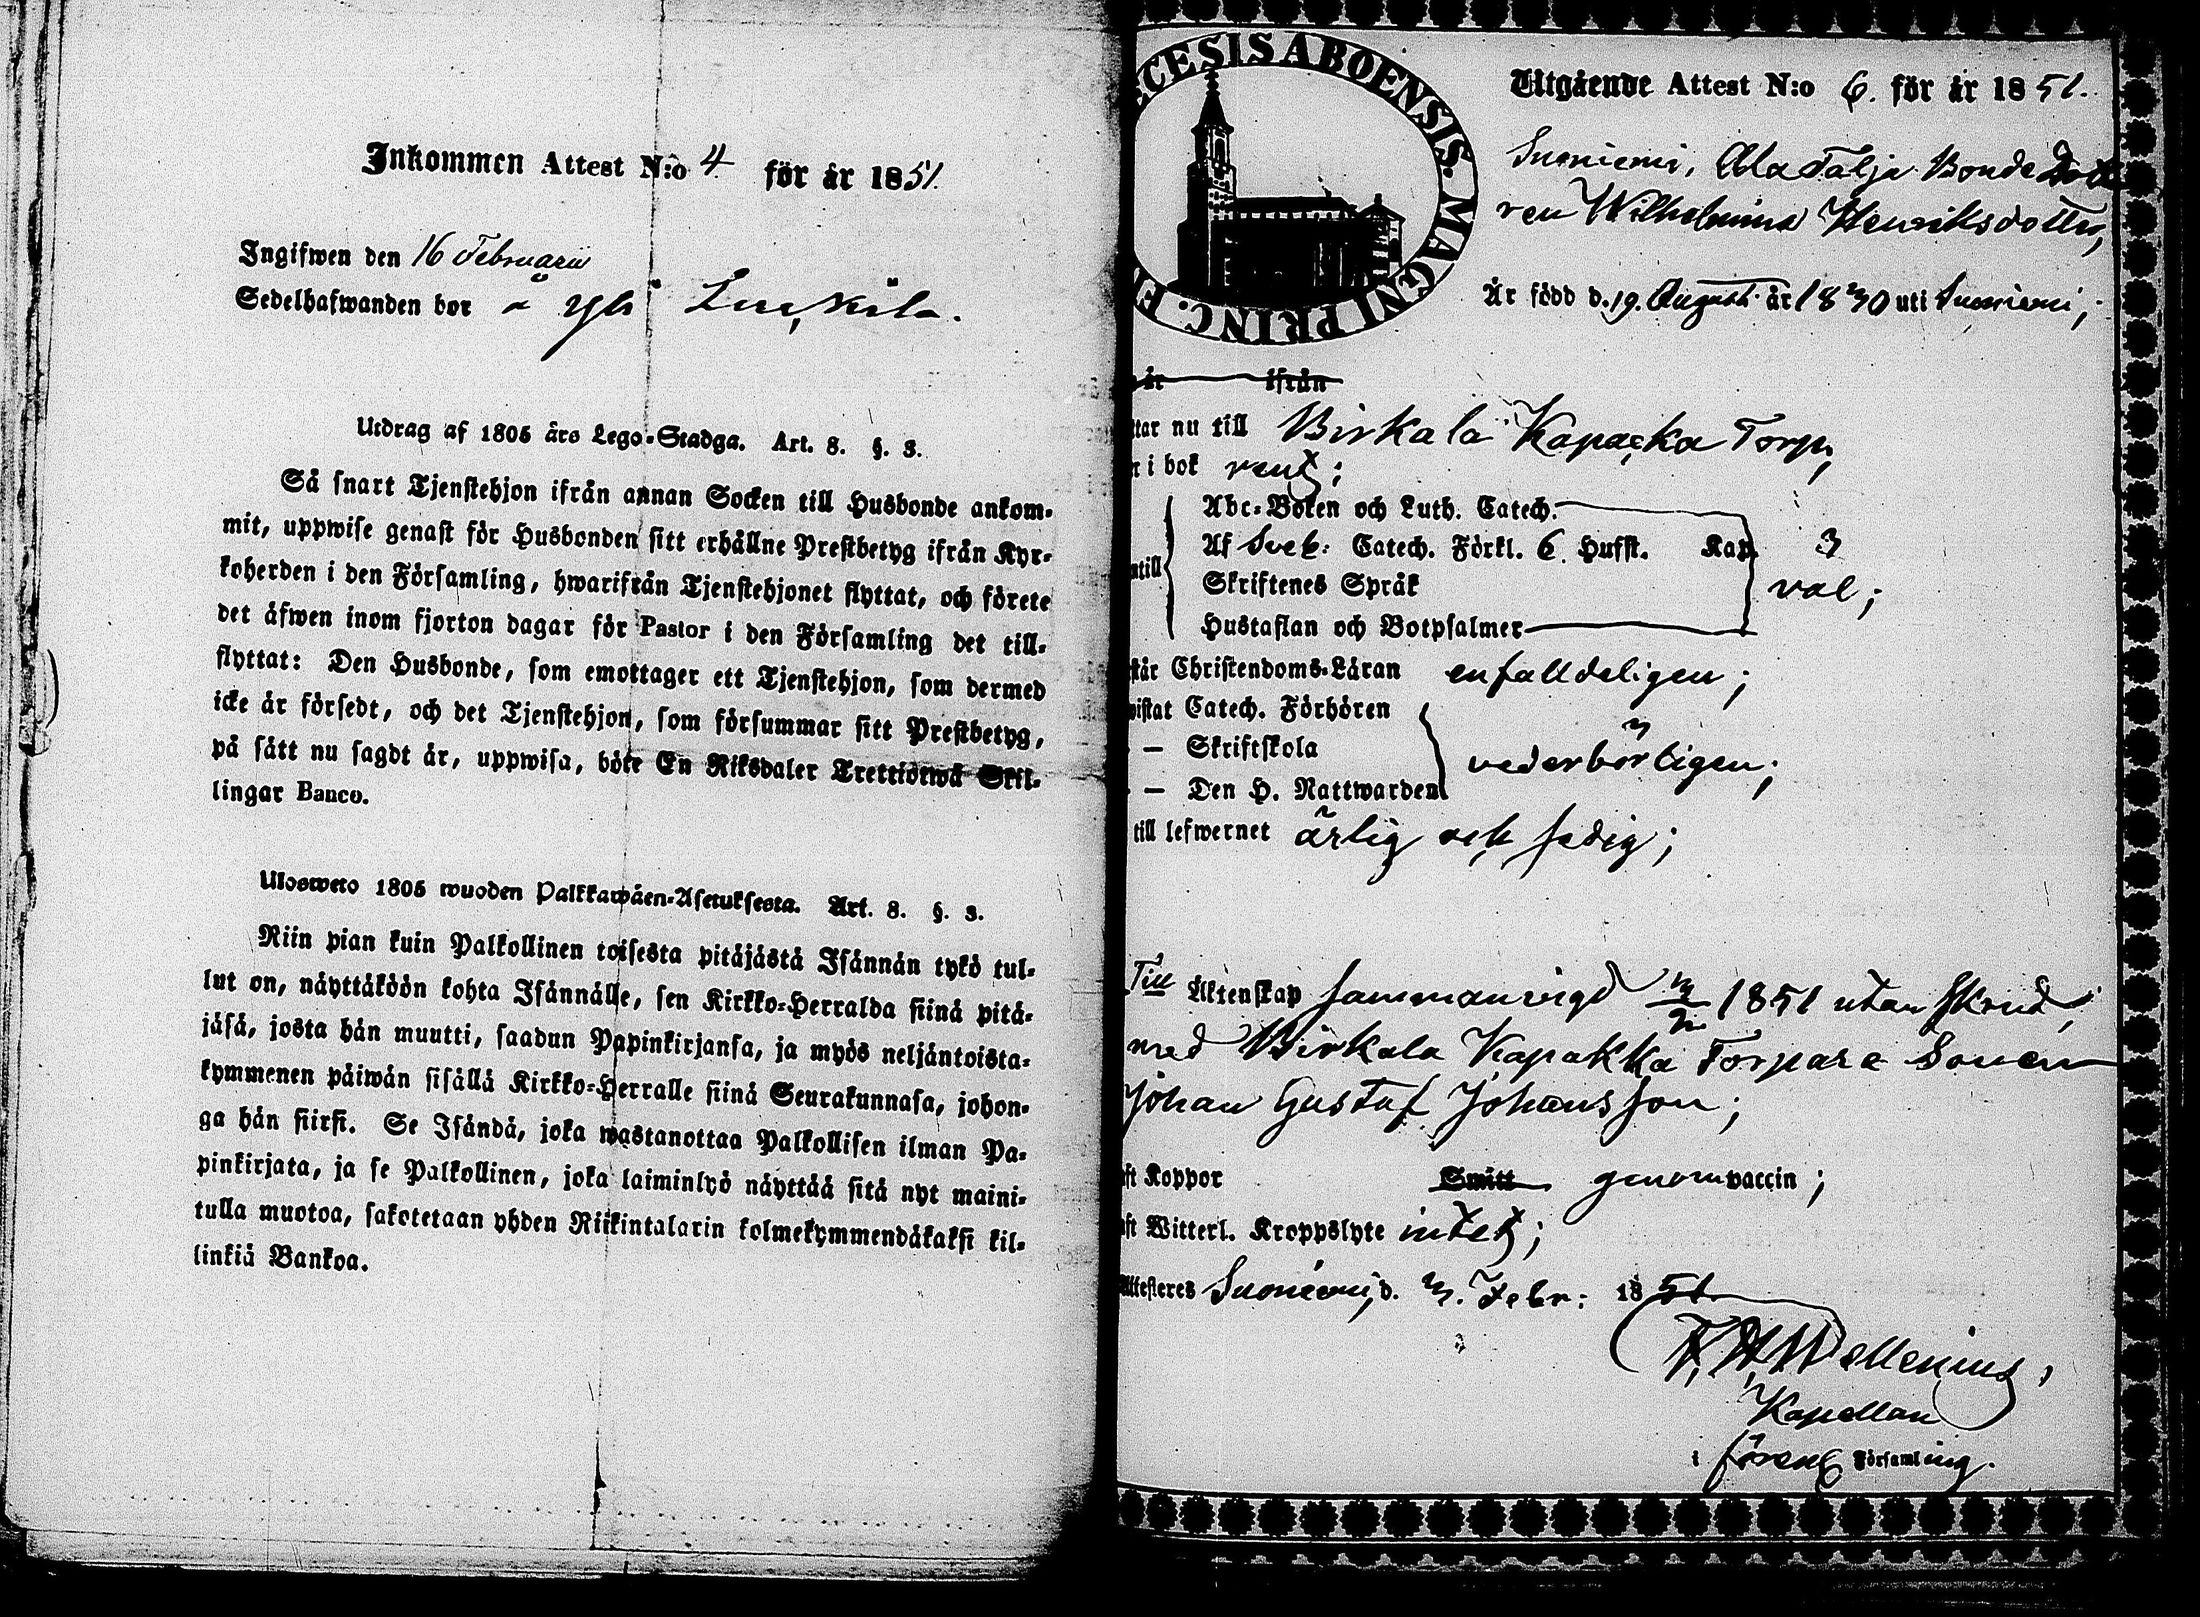 Inkommen Attest N:o 4 för år 1851.
Ingifwen den 16 Februarii
Sedelhafwanden bor å Yli
Utdrag af 1805 års Lego-Stadga. Art. 8. §. 3.
Så snart Tjenstehjon ifrån annan Socken till Husbonde ankom-
mit, uppwise genast för Husbonden sitt erhållne Prestbetyg ifrån Kyr-
koherden i den Församling, hwarifrån Tjenstehjonet flyttat, och förete
det äfwen inom fjorton dagar för Pastor i den Församling det till-
flyttat: Den Husbonde, som emottager ett Tjenstehjon, som dermed
icke är försedt, och det Tjenstehjon, som försummar sitt Prestbetyg,
på sätt nu sagdt är, uppwisa, böte En Riksdaler Trettiotwå Skil-
lingar Banco.
Ulosweto 1805 wuoden Palkkawäen-Asetuksesta. Art. 8. §. 3.
Niin pian kuin Palkollinen toisesta pitäjästä Isännän tykö tul-
lut on, näyttäköön kohta Isännälle, sen Kirkko-Herralda siinä pitä-
jäsä, josta hän muutti, saadun Papinkirjansa, ja myös neljäntoista-
kymmenen päiwän sisällä Kirkko-Herralle siinä Seurakunnasa, johon-
ga hän siirsi. Se Isändä, joka wastanottaa Palkollisen ilman Pa-
pinkirjata, ja se Palkollinen, joka laiminlyö näyttää sitä nyt maini-
tulla muotoa, sakotetaan yhden Riikintalarin kolmekymmendäkaksi kil-
linkiä Bankoa.
ECESIS ABOENSIS. MAGNI PRINC. F
Utgående Attest N:o 6. för år 1851.
Suoniemi, Ala Talja Bonde Dotte
ren Wilhelmina Henriksdotter,
Är född d. 19. August. år 1830 uti Suoniemi;
år ifrån
ttar nu till Birkala Kapacka Torp,
r i bok rent;
Abc-Boken och Luth. Catech.
Af Sveb: Catech. Förkl. 6. Hufst. Kap. 3
ntill Skriftenes Språk val;
Hustaflan och Botpsalmer
står Christendoms-Läran enfalldeligen;
wistat Catech. Förhören
— Skriftskola vederbörligen;
- — Den H. Nattwarden
till lefwernet ärlig och sedig;
Till Äktenskap sammanvigd 1851 utan skrud,
med Birkala Kapakka Torpare Sonen
Johan Gustaf Johansson;
aft Koppor Smitt genom vaccin;
aft Witterl. Kroppslyte intet;
Attesteres Suoniemi, d. 3. Febr: 1851.
F. H. Mellenius,
Kapellan
i föreng Församling.